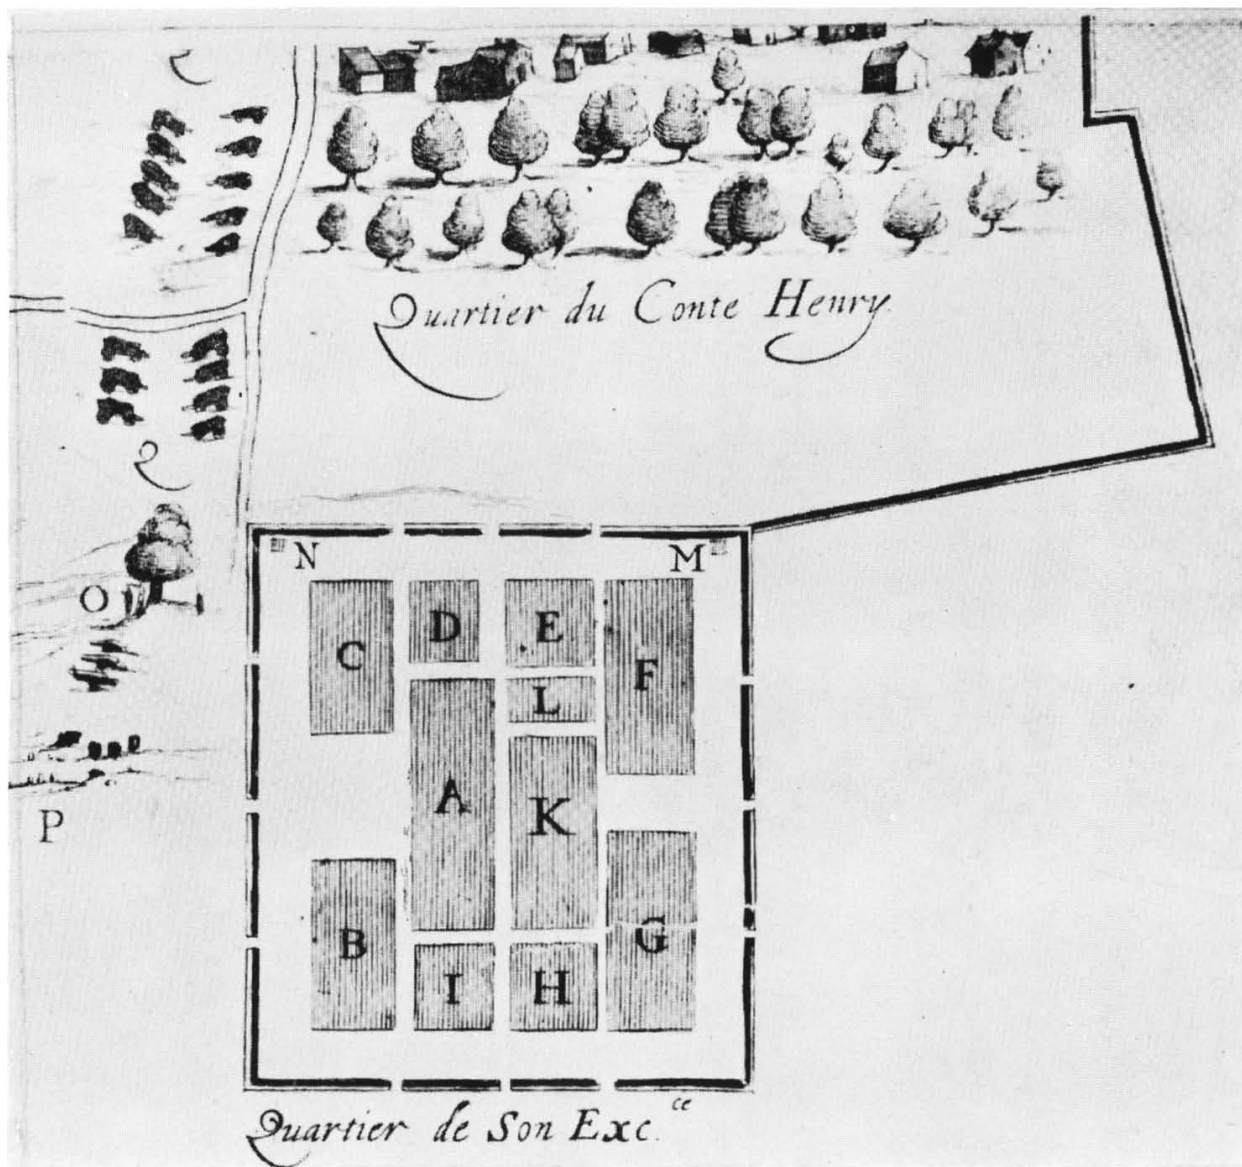 Quartier du Conte Henry.
N M
C D E F
O
L
A K
P
B G
I H
Quartier de Son Exc.ce